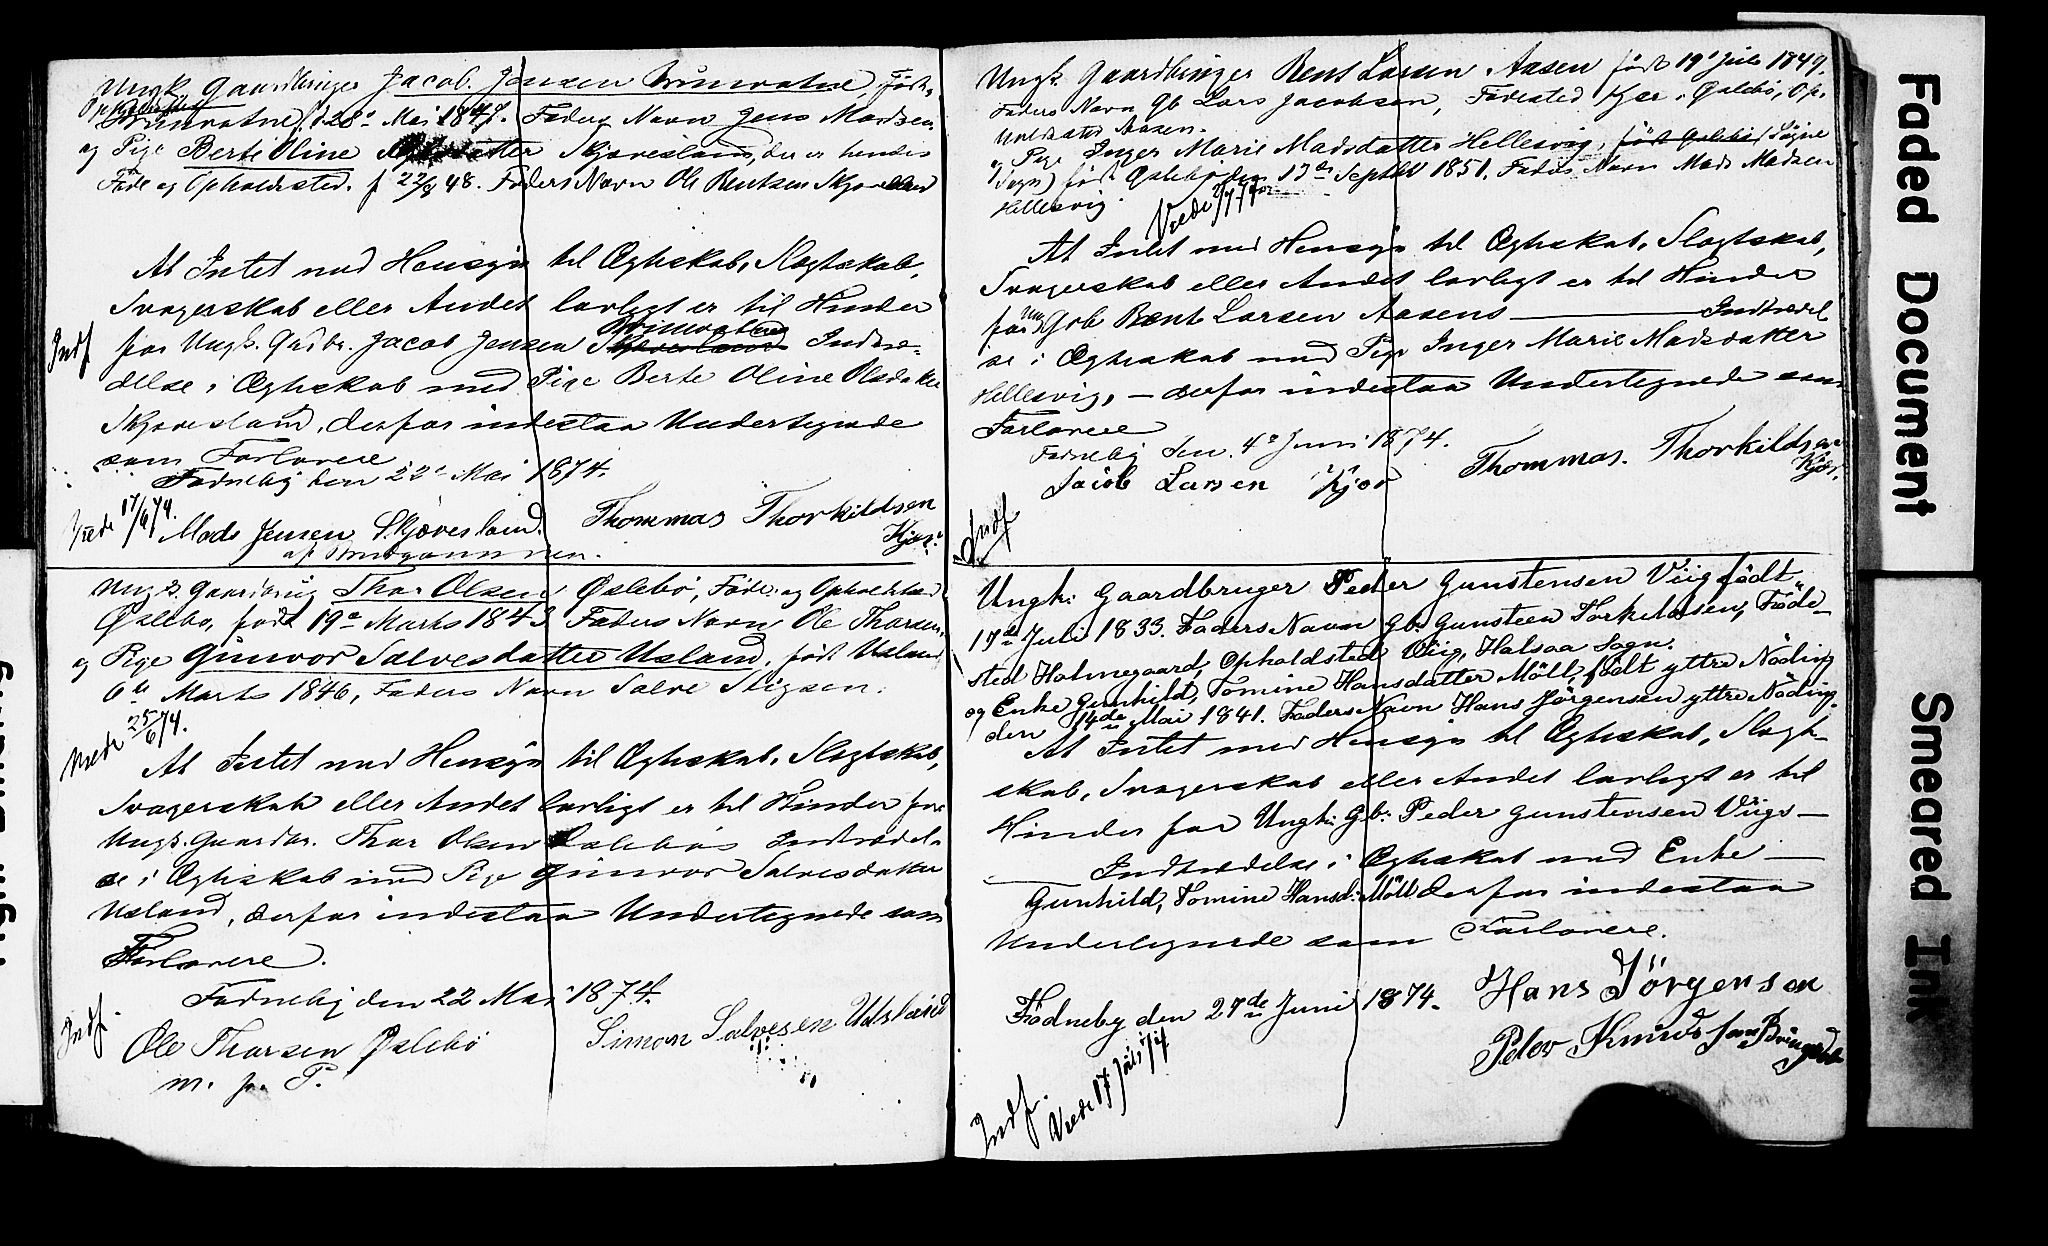 Ungk. Gaardbruger Jacob Jensen Brunvatne, Føde-
Brunvatne, d 28de Mai 1847. Faders Navn Jens Madsen
og Pige Berte Oline Skjævesland, der er hendes
Føde og Opholdsted. f 22/8 48. Faders Navn Ole Bentsen Skjævesland
At Intet med Hensyn til Ægteskab, Slægtskab,
Svogerskab eller Andet lovligt er til Hinder
Brunvatnes
for Ungk. Gaardbr. Jacob Jensen Indtræ-
delse i Ægteskab med Pige Berte Oline Olsdatter
Skjævesland, derfor indestaa Undertegnede
som Forlovere
Fødneby den 22de Mai 1874.
Indf
Viede 17/6 74.
Mads Jensen Skjævesland.
Thommas Thorkildsen
Kjær.
Ungk. Gaardbrug Thor Olsen Øslebö, Føde- og Opholdsted
Øslebö, født 19de Marts 1843 Faders Navn Ole Thorsen,
og Pige Gunvor Salvesdatter Usland, født Usland
6te Marts 1846, Faders Navn Salve Stigsen.
Viede 25/6 74.
At Intet med Hensyn til Ægteskab, Slægtskab,
Svogerskab eller Andet lovligt er til Hinder for
Ungk. Gaardbr. Thor Olsen Øslebös Indtrædel-
se i Ægteskab med Pige Gunvor Salvesdatter
Usland, derfor indestaa Undertegnede som
Forlovere.
Fødneby den 22 Mai 1874.
Indf.
Ole Thorsen Øslebö
m. f. P.
Simon Salvesen Udsland
Ungk. Gaardbruger Bent Larsen Aasen født 19de Juli 1849.
Faders Navn Gb Lars Jacobsen, Fødested Kjær i Øslebö, Op-
holdsted Aasen.
og Pige Inger Marie Madsdatter Hellesvig, født Øslebö (Søgne
Sogn) født Øslebö den 17de Septbr 1851. Faders Navn Mads Madsen
Hellesvig.
Viede 2/7 74
At Intet med Hensyn til Ægteskab, Slægtskab,
Svogerskab eller Andet lovligt er til Hinder
for Ung Gb Bent Larsen Aasens — Indtrædel
se i Ægteskab med Pige Inger Marie Madsdatter
Hellesvig, — derfor indestaa Undertegnede som
Forlovere
Fødneby den 4de Juni 1874.
Jacob Larsen Kjær
Thommas. Thorkildsen
Kjær.
Indf
Ungk: Gaardbruger Peder Gunstensen Viig født
17de Juli 1833. Faders Navn Gb: Gunsteen Torkildsen, Føde-
sted Holmegaard, Opholdsted Viig, Halsaa Sogn.
og Enke Gunhild, Tomine Hansdatter Möll, födt yttre Nöding
den 14de Mai 1841. Faders Navn Hans Jörgensen yttre Nöding.
At Intet med Hensyn til Ægteskab, Slægt-
skab, Svogerskab eller Andet lovligt er til
Hinder for Ungk: Gb: Peder Gunstensen Viigs —
Indtrædelse i Ægteskab med Enke —
Gunhild, Tomine Hansd: Möll derfor indestaa
Undertegnede som Forlovere.
Födneby den 27de Juni 1874.
Hans Jörgensen
Peder Knudsen Bringsdal
Indf.
Viede 17 Juli 74
Faded Document
Smeared Ink